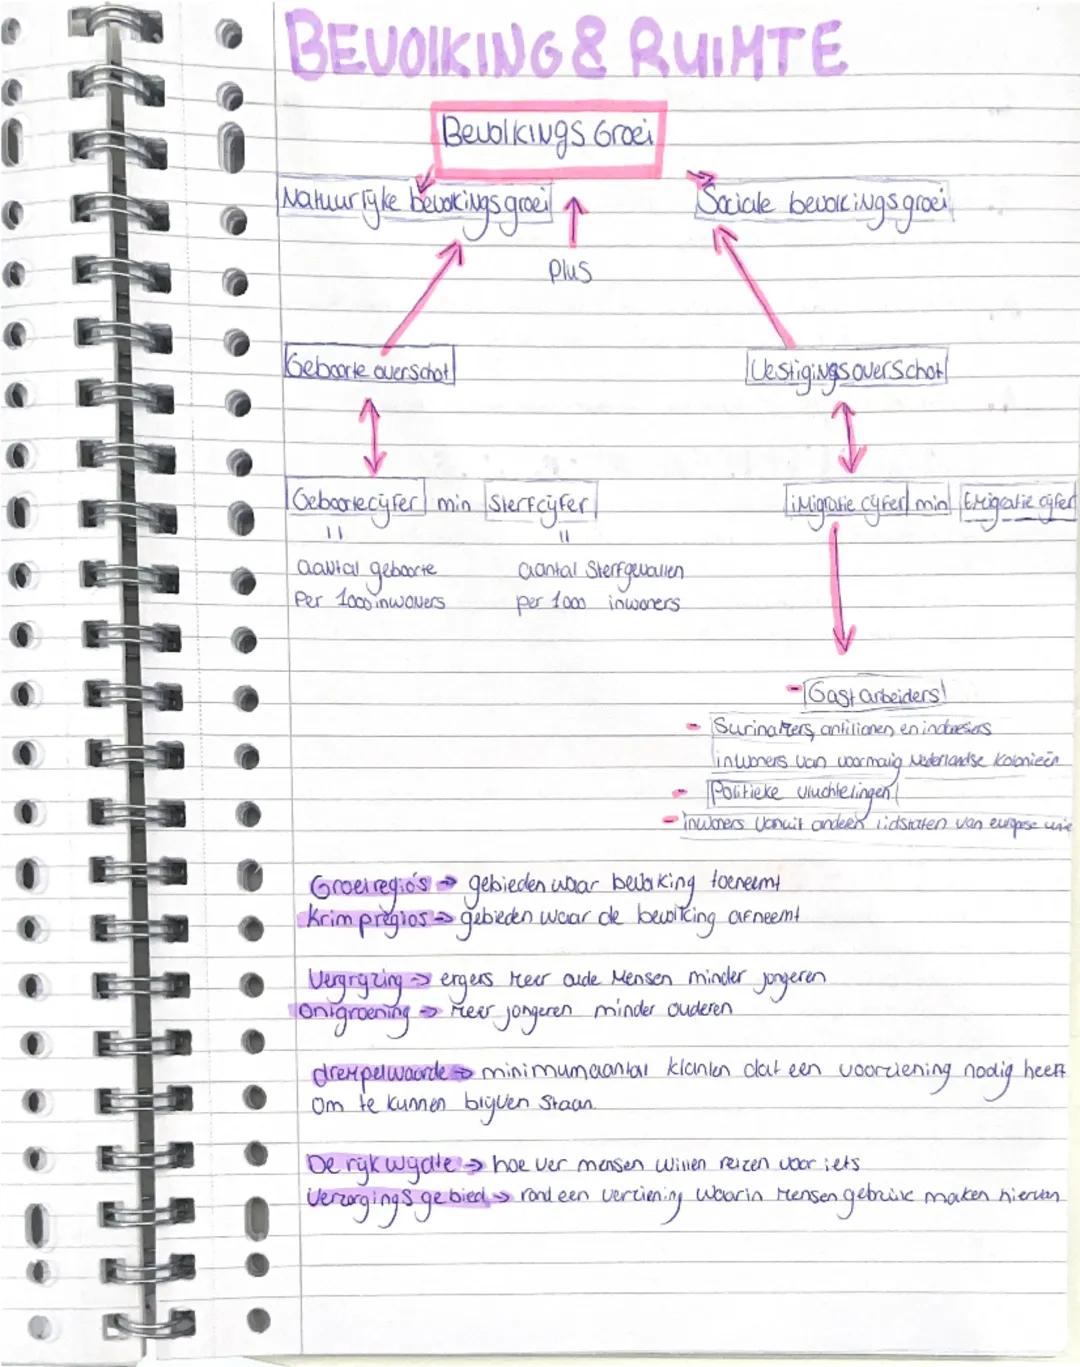 BEVOlKING & RUIMTE
Bevolkings Groei
Natuurlijke bevolkings groei
Sociale bevolkings groei
Plus
Geboorte overschot
Vestigings overschot
Geboortecijfer min Sterfcijfer
iMigratie cijfer min EMigratie cijfer
aantal geboorte
aantal Sterfgevallen
Per 1000 inwoners
per 1000 inwoners
- Gastarbeiders
- Surinamers, antilianen en indonesiers
inwoners van voormalig Nederlandse Kolonieën
- Politieke vluchtelingen
- inwoners vanuit andere lidstaten van europese unie
Groeiregio's → gebieden waar bevolking toeneemt
Krimpregios → gebieden waar de bevolking afneemt
Vergrijzing → ergens meer oude Mensen minder jongeren
Ontgroening → meer jongeren minder ouderen
drempelwaarde → minimumaantal klanten dat een voorziening nodig heeft
Om te kunnen blijven Staan.
De rijkwijdte → hoe ver mensen willen reizen voor iets
Verzorgings gebied → rond een verziening waarin mensen gebruik maken hiervan